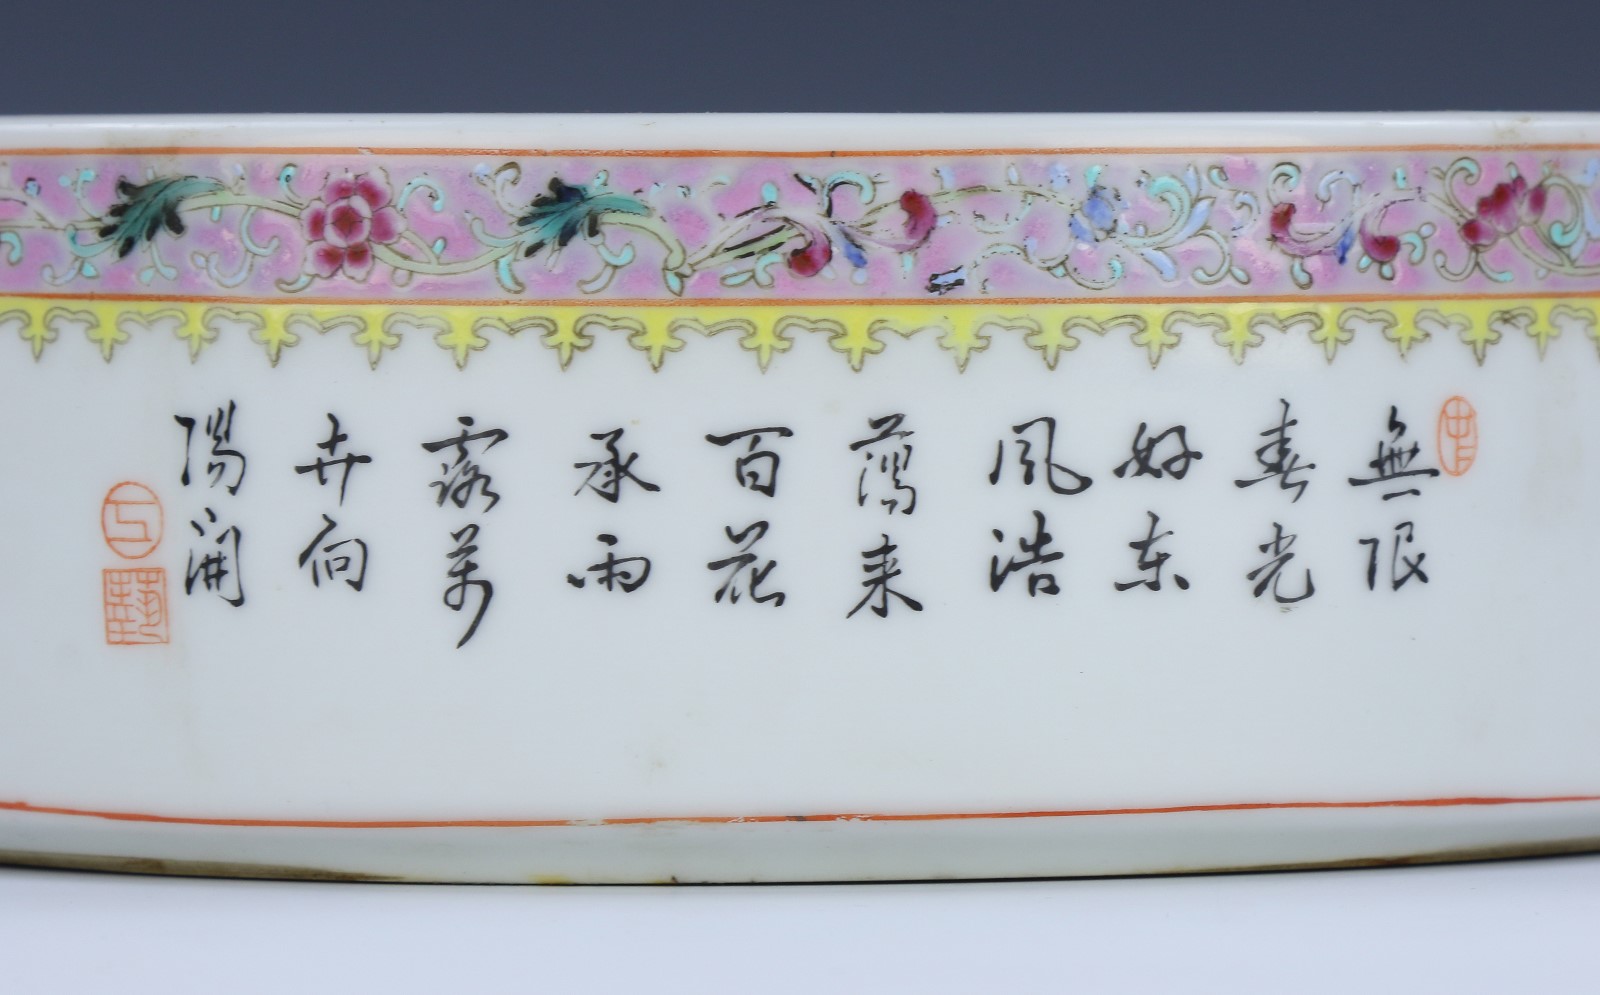 無限
春光
好东
風浩
蕩来
百花
承雨
露萬
卉向
陽開